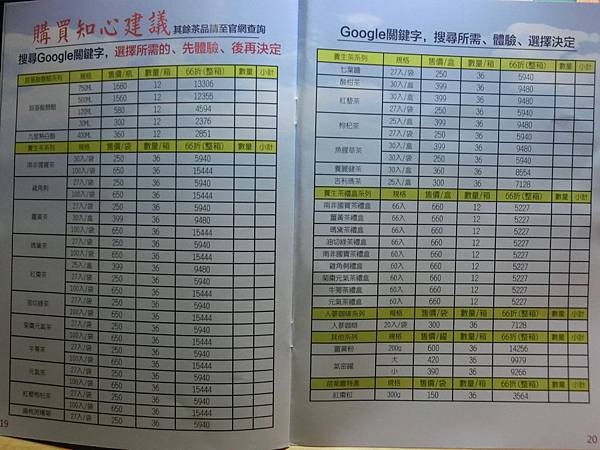 購買知心建議 其餘茶品請至官網查詢
搜尋Google關鍵字，選擇所需的、先體驗、後再決定
規格 售價/瓶 數量/箱 66折(整箱) 數量 小計
750ML 1680 12 13306
500ML 1560 12 12355
120ML 580 12 4594
30ML 300 12 2376
400ML 360 12 2851
養生茶系列 規格 售價/袋 數量/箱 66折(整箱) 數量 小計
南非國寶茶 30入/袋 250 36 5940
100入/袋 650 36 15444
雞角刺 27入/袋 250 36 5940
100入/袋 650 36 15444
薑黃茶 27入/袋 250 36 5940
30入/盒 399 36 9480
100入/袋 650 36 15444
瑪黛茶 27入/袋 250 36 5940
100入/袋 650 36 15444
紅棗茶 25入/盒 399 36 9480
27入/袋 250 36 5940
100入/袋 650 36 15444
油切綠茶 27入/袋 250 36 5940
100入/袋 650 36 15444
柴棗元氣茶 27入/袋 250 36 5940
100入/袋 650 36 15444
牛蒡茶 27入/袋 250 36 5940
100入/袋 650 36 15444
紅藜枸杞茶 27入/袋 250 36 5940
100入/袋 650 36 15444
27入/袋 250 36 5940
19
Google關鍵字，搜尋所需、體驗、選擇決定
養生茶系列 規格 售價/盒 數量/箱 66折(整箱) 數量 小計
七葉膽 27入/袋 250 36 5940
酸柑茶 30入/盒 399 36 9480
紅藜茶 27入/袋 250 36 5940
30入/盒 399 36 9480
枸杞茶 25入/盒 399 36 9480
27入/袋 250 36 5940
魚腥草茶 30入/盒 399 36 9480
30入/袋 250 36 5940
養麗健茶 30入/盒 360 36 8554
吉利瑪茶 25入/盒 300 36 7128
養生茶禮盒系列 規格 售價/盒 數量/箱 66折(整箱) 數量 小計
南非國寶茶禮盒 66入 660 12 5227
薑黃茶禮盒 66入 660 12 5227
瑪黛茶禮盒 66入 660 12 5227
油切綠茶禮盒 66入 660 12 5227
南非國寶茶禮盒 60入 660 12 5227
雞角刺禮盒 60入 660 12 5227
柴棗元氣茶禮盒 60入 660 12 5227
牛蒡茶禮盒 60入 660 12 5227
元氣茶禮盒 60入 660 12 5227
人蔘咖啡系列 規格 售價/袋 數量/箱 66折(整箱) 數量 小計
人蔘咖啡 20入/袋 300 36 7128
其他系列 規格 售價/罐 數量/箱 66折(整箱) 數量 小計
薑黃粉 200g 600 36 14256
氣密罐 大 420 36 9979
小 390 36 9266
苗栗農特產 規格 售價/袋 數量/箱 66折(整箱) 數量 小計
紅棗粒 300g 150 36 3564
20